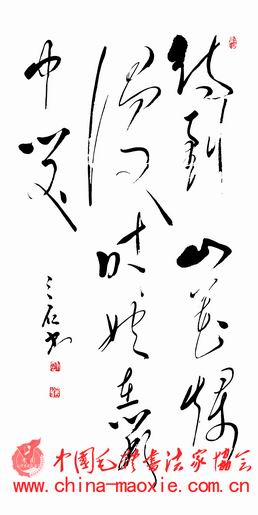 待到山花烂
漫时她在丛
中笑
中國毛體書法家協會
www.china-maoxie.com.cn